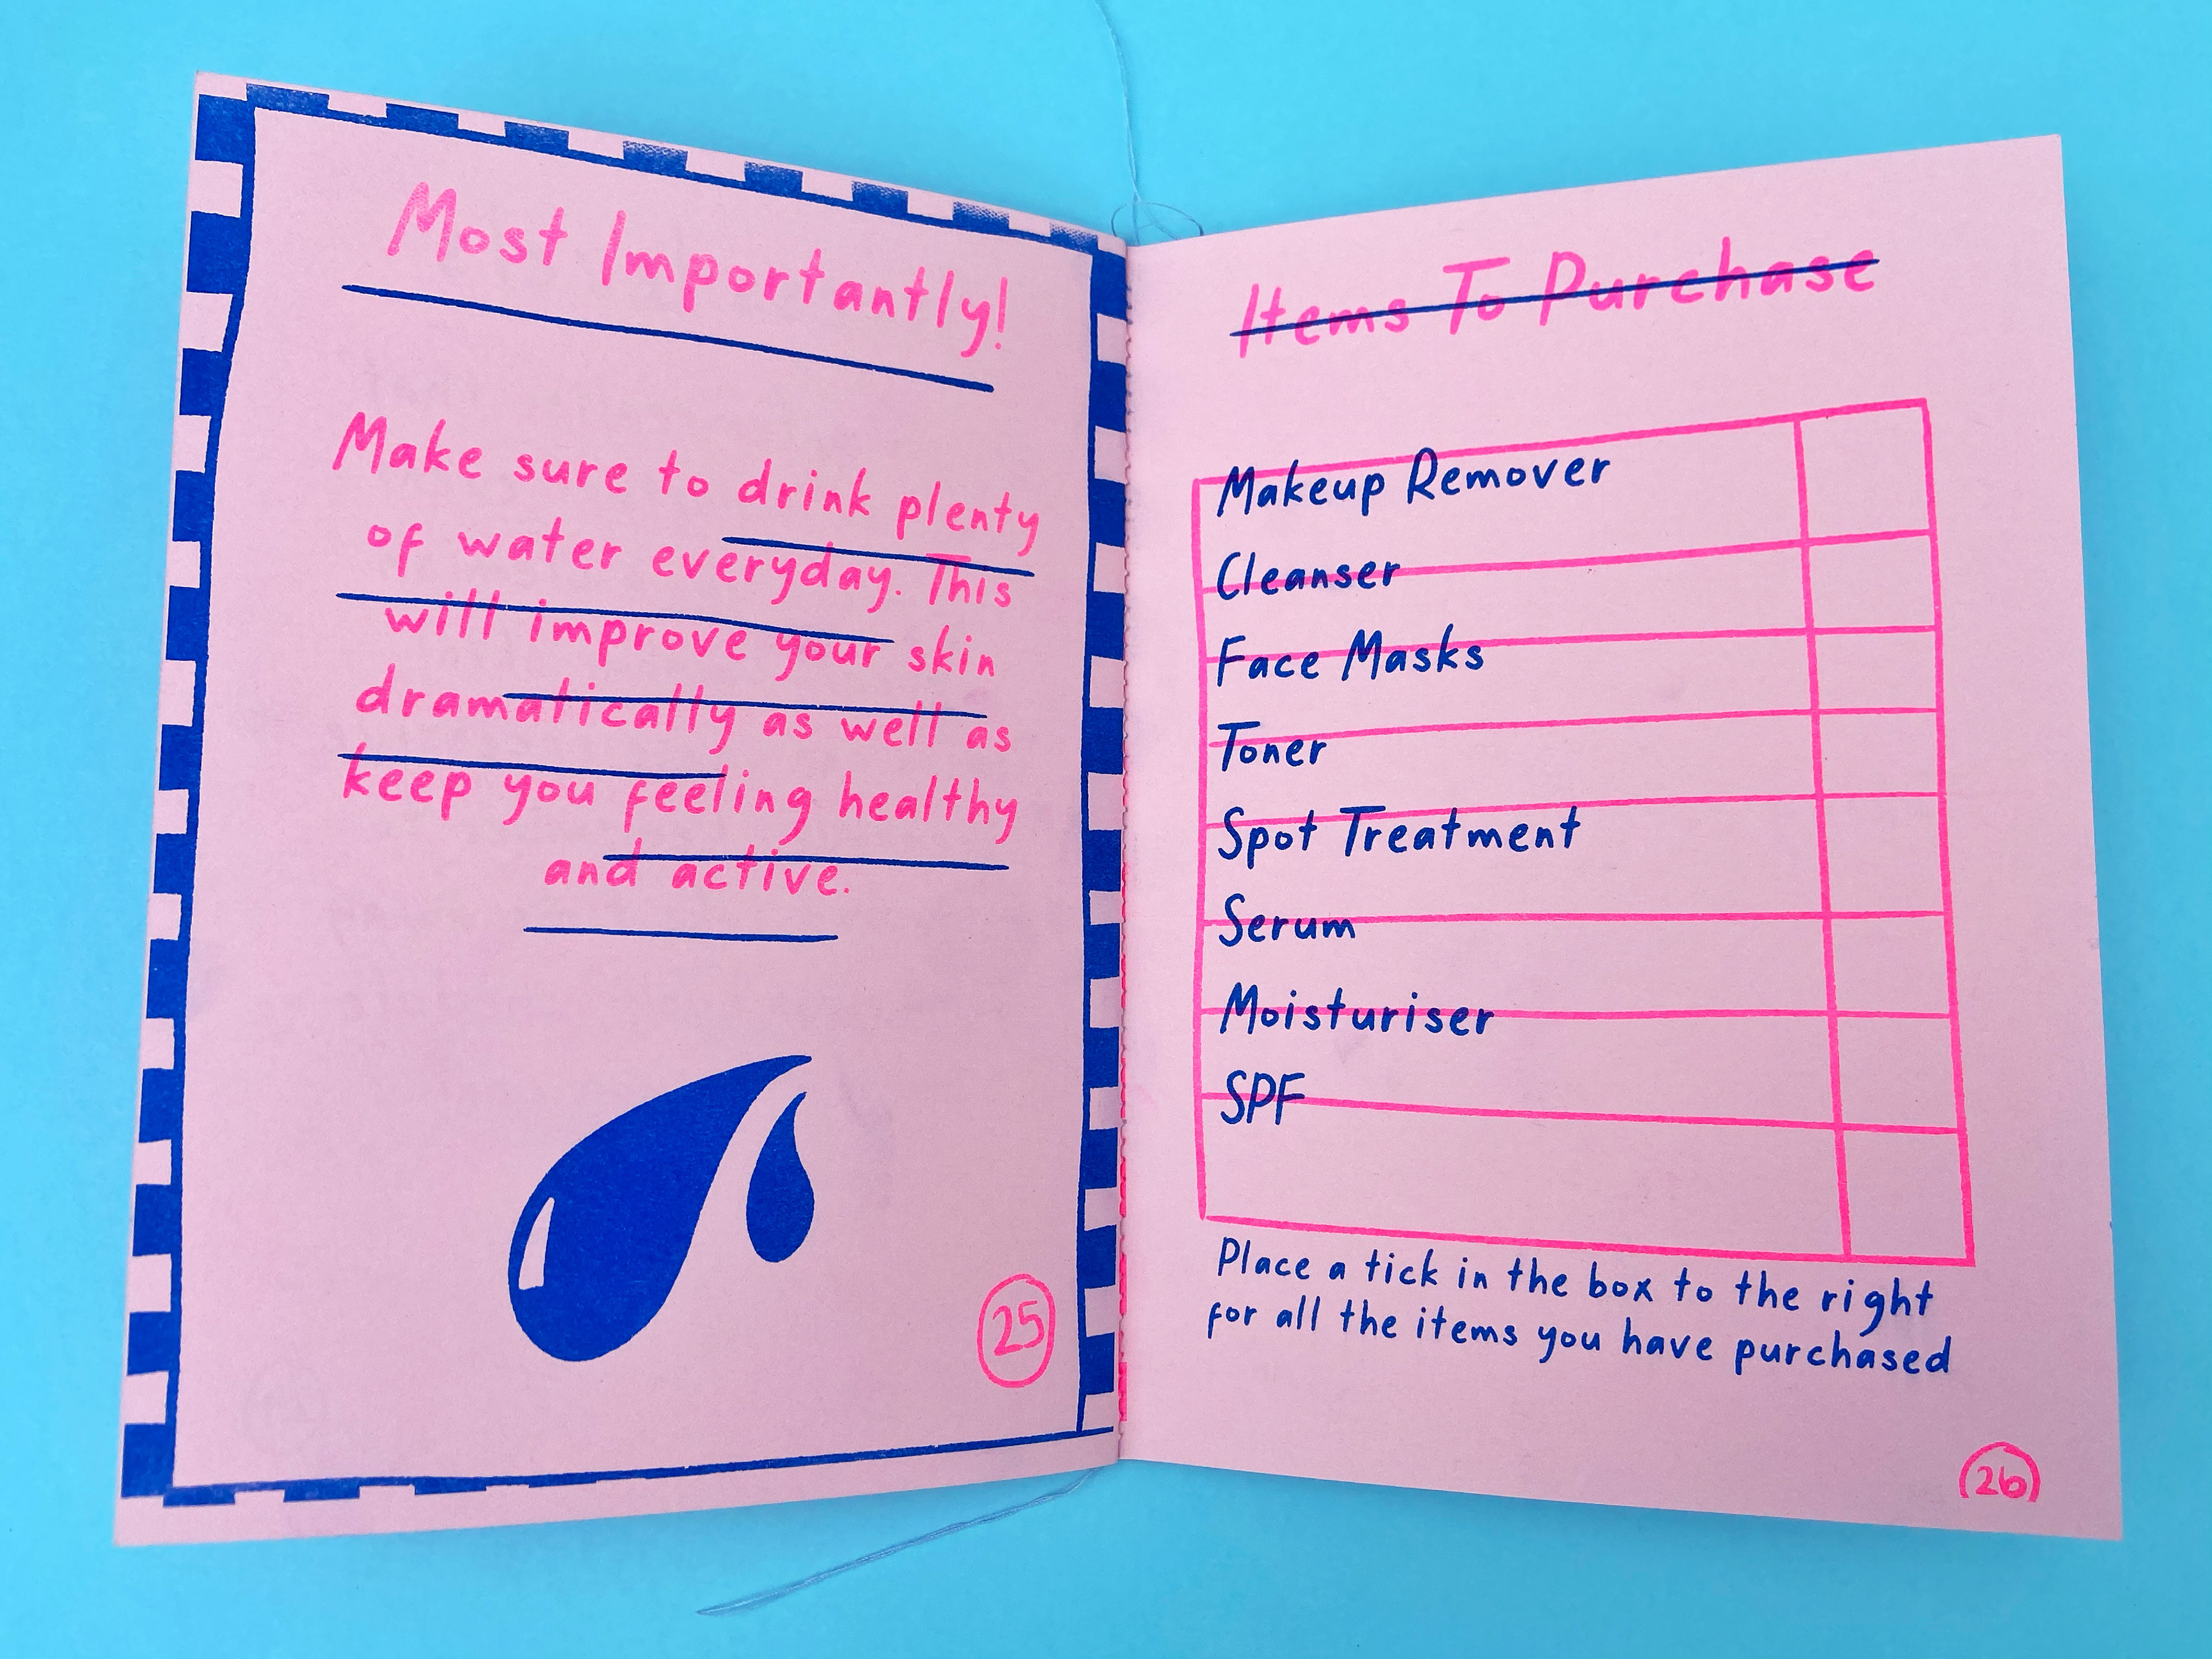 Most Importantly!
Make sure to drink plenty
of water everyday. This
will improve your skin
dramatically as well as
keep you feeling healthy
and active.
25
Items To Purchase
Makeup Remover
Cleanser
Face Masks
Toner
Spot Treatment
Serum
Moisturiser
SPF
Place a tick in the box to the right
for all the items you have purchased
26